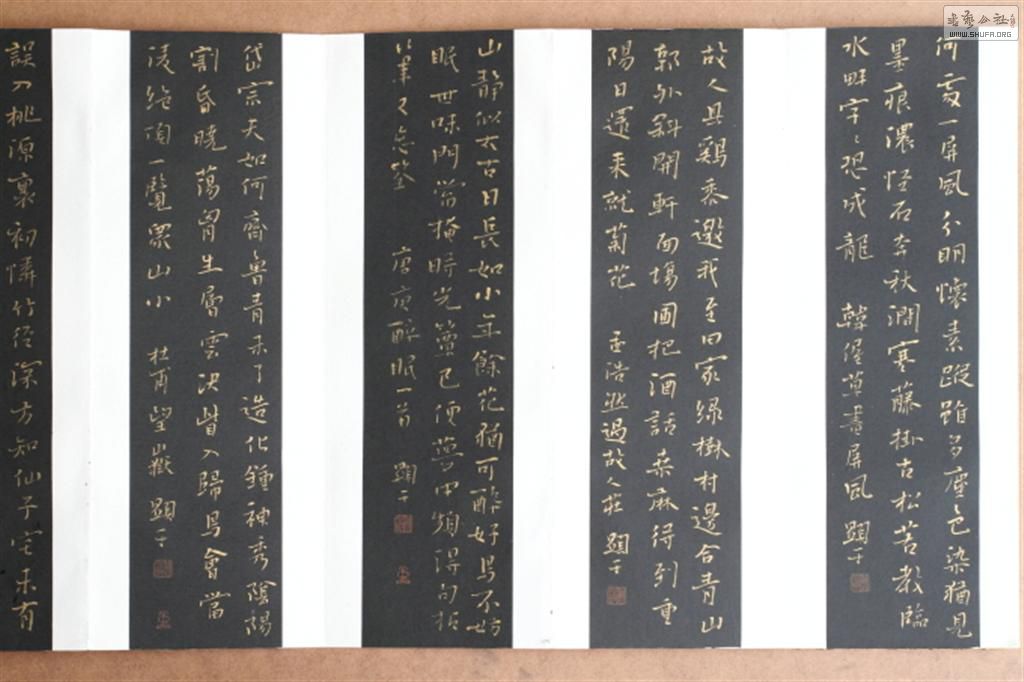 書藝公社
WWW.SHUFA.ORG
何處一屏風分明懷素蹤雖多塵色染猶見
墨痕濃怪石奔秋澗寒藤掛古松若教臨
水畔字々恐成龍 韓偓草書屏風 顯
故人具鷄黍邀我至田家綠樹村邊合青山
郭外斜開軒面場圃把酒話桑麻待到重
陽日還來就菊花 孟浩然過故人莊 顯
山靜似太古日長如小年餘花猶可醉好鳥不妨
眠世味門常掩時光簟已便夢中頻得句拈
筆又忘筌 唐庚醉眠一首 顯
岱宗夫如何齊魯青未了造化鍾神秀陰陽
割昏曉蕩胷生層雲決眥入歸鳥會當
淩絕頂一覽眾山小 杜甫望嶽 顯
誤入桃源裏初憐竹徑深方知仙子宅未有